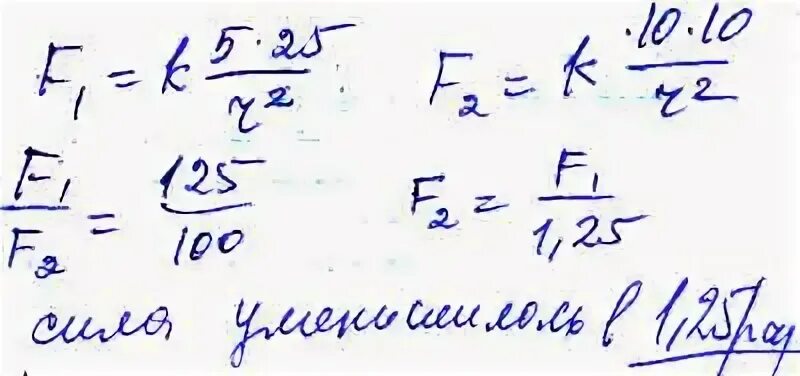 F₁ = k 5·25/r² F₂ = k ·10·10/r²
F₁/F₂ = 125/100 F₂ = F₁/1,25
сила уменшилось в 1,25 раз